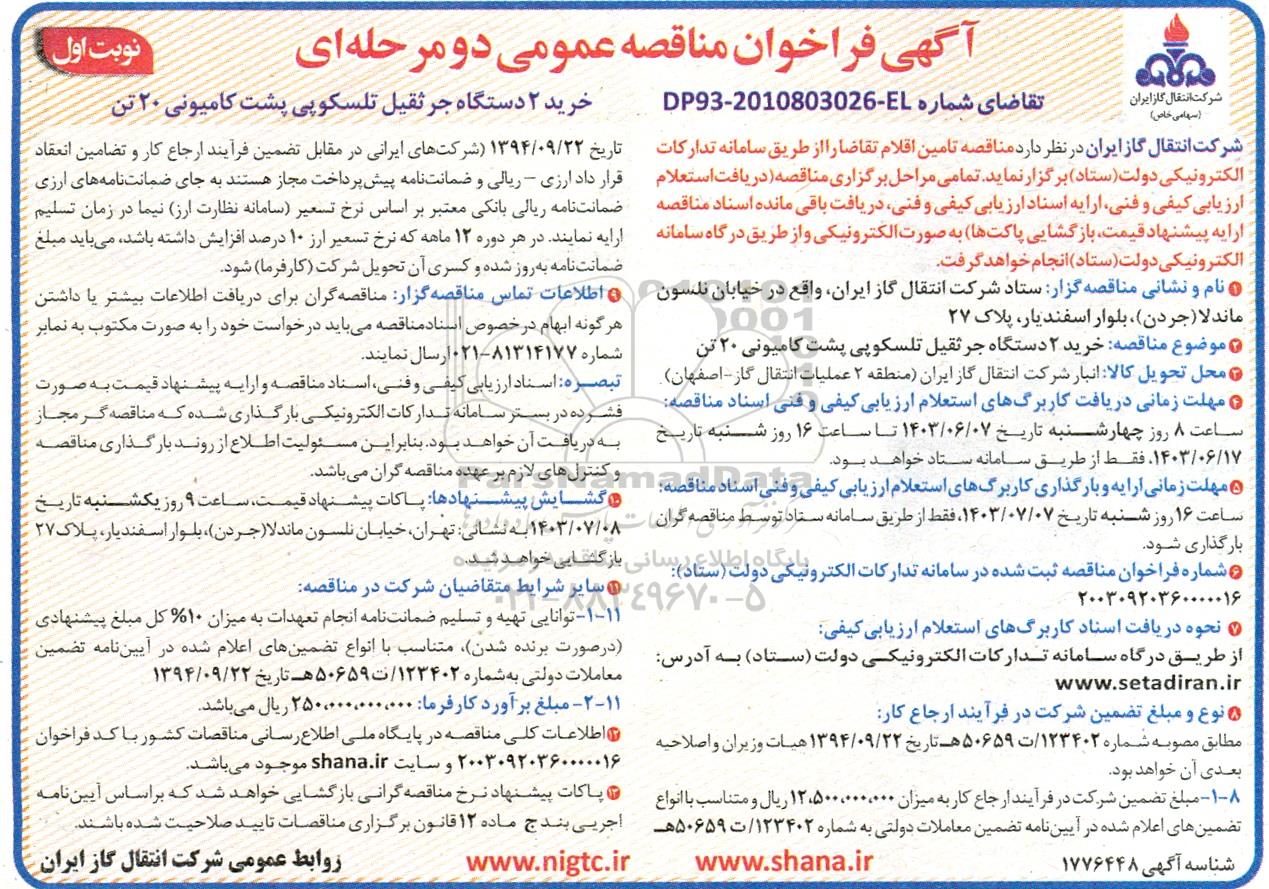 آگهی فراخوان مناقصه عمومی دو مرحله‌ای
نوبت اول
شرکت انتقال گاز ایران
(سهامی خاص)
تقاضای شماره DP93-2010803026-EL
خرید ۲ دستگاه جر ثقیل تلسکوپی پشت کامیونی ۲۰ تن
شرکت انتقال گاز ایران در نظر دارد مناقصه تامین اقلام تقاضا را از طریق سامانه تدارکات
الکترونیکی دولت(ستاد) برگزار نماید. تمامی مراحل برگزاری مناقصه(دریافت استعلام
ارزیابی کیفی و فنی، ارایه اسناد ارزیابی کیفی و فنی، دریافت باقی مانده اسناد مناقصه
ارایه پیشنهاد قیمت، بازگشایی پاکت‌ها) به صورت الکترونیکی و از طریق درگاه سامانه
الکترونیکی دولت(ستاد) انجام خواهد گرفت.
۱ نام و نشانی مناقصه گزار: ستاد شرکت انتقال گاز ایران، واقع در خیابان نلسون
ماندلا(جردن)، بلوار اسفندیار، پلاک ۲۷
۲ موضوع مناقصه: خرید ۲ دستگاه جر ثقیل تلسکوپی پشت کامیونی ۲۰ تن
۳ محل تحویل کالا: انبار شرکت انتقال گاز ایران (منطقه ۲ عملیات انتقال گاز-اصفهان)
۴ مهلت زمانی دریافت کاربرگ‌های استعلام ارزیابی کیفی و فنی اسناد مناقصه:
ساعت ۸ روز چهارشنبه تاریخ ۱۴۰۳/۰۶/۰۷ تا ساعت ۱۶ روز شنبه تاریخ
۱۴۰۳/۰۶/۱۷، فقط از طریق سامانه ستاد خواهد بود.
۵ مهلت زمانی ارایه و بارگذاری کاربرگ‌های استعلام ارزیابی کیفی و فنی اسناد مناقصه:
ساعت ۱۶ روز شنبه تاریخ ۱۴۰۳/۰۷/۰۷، فقط از طریق سامانه ستاد توسط مناقصه گران
بارگذاری شود.
۶ شماره فراخوان مناقصه ثبت شده در سامانه تدارکات الکترونیکی دولت (ستاد):
۲۰۰۳۰۹۲۰۳۶۰۰۰۰۱۶
۷ نحوه دریافت اسناد کاربرگ‌های استعلام ارزیابی کیفی:
از طریق درگاه سامانه تدارکات الکترونیکی دولت (ستاد) به آدرس:
www.setadiran.ir
۸ نوع و مبلغ تضمین شرکت در فرآیند ارجاع کار:
مطابق مصوبه شماره ۱۲۳۴۰۲/ت ۵۰۶۵۹ هـ تاریخ ۱۳۹۴/۰۹/۲۲ هیات وزیران و اصلاحیه
بعدی آن خواهد بود.
۸-۱- مبلغ تضمین شرکت در فرآیند ارجاع کار به میزان ۱۲,۵۰۰,۰۰۰,۰۰۰ ریال و متناسب با انواع
تضمین‌های اعلام شده در آیین‌نامه تضمین معاملات دولتی به شماره ۱۲۳۴۰۲/ت ۵۰۶۵۹هـ
تاریخ ۱۳۹۴/۰۹/۲۲ (شرکت‌های ایرانی در مقابل تضمین فرآیند ارجاع کار و تضامین انعقاد
قرار داد ارزی – ریالی و ضمانت‌نامه پیش‌پرداخت مجاز هستند به جای ضمانت‌نامه‌های ارزی
ضمانت‌نامه ریالی بانکی معتبر بر اساس نرخ تسعیر (سامانه نظارت ارز) نیما در زمان تسلیم
ارایه نمایند. در هر دوره ۱۲ ماهه که نرخ تسعیر ارز ۱۰ درصد افزایش داشته باشد، می‌باید مبلغ
ضمانت‌نامه به‌روز شده و کسری آن تحویل شرکت (کارفرما) شود.
۹ اطلاعات تماس مناقصه‌گزار: مناقصه‌گران برای دریافت اطلاعات بیشتر یا داشتن
هرگونه ابهام درخصوص اسناد مناقصه می‌باید درخواست خود را به صورت مکتوب به نمابر
شماره ۸۱۳۱۴۱۷۷-۰۲۱ ارسال نمایند.
تبصره: اسناد ارزیابی کیفی و فنی، اسناد مناقصه و ارایه پیشنهاد قیمت به صورت
فشرده در بستر سامانه تدارکات الکترونیکی بارگذاری شده که مناقصه گر مجاز
به دریافت آن خواهد بود. بنابراین مسئولیت اطلاع از روند بارگذاری مناقصه
و کنترل‌های لازم بر عهده مناقصه گران می‌باشد.
۱۰ گشایش پیشنهادها: پاکات پیشنهاد قیمت، ساعت ۹ روز یکشنبه تاریخ
۱۴۰۳/۰۷/۰۸ به نشانی: تهران، خیابان نلسون ماندلا(جردن)، بلوار اسفندیار، پلاک ۲۷
بازگشایی خواهد شد.
۱۱ سایر شرایط متقاضیان شرکت در مناقصه:
۱-۱۱- توانایی تهیه و تسلیم ضمانت‌نامه انجام تعهدات به میزان ۱۰% کل مبلغ پیشنهادی
(درصورت برنده شدن)، متناسب با انواع تضمین‌های اعلام شده در آیین‌نامه تضمین
معاملات دولتی به‌شماره ۱۲۳۴۰۲/ت۵۰۶۵۹هـ تاریخ ۱۳۹۴/۰۹/۲۲
۲-۱۱- مبلغ برآورد کارفرما: ۲۵۰,۰۰۰,۰۰۰,۰۰۰ ریال می‌باشد.
۱۲ اطلاعات کلی مناقصه در پایگاه ملی اطلاع‌رسانی مناقصات کشور با کد فراخوان
۲۰۰۳۰۹۲۰۳۶۰۰۰۰۱۶ و سایت shana.ir موجود می‌باشد.
۱۳ پاکات پیشنهاد نرخ مناقصه‌گرانی بازگشایی خواهد شد که براساس آیین‌نامه
اجریی بند ج ماده ۱۲ قانون برگزاری مناقصات تایید صلاحیت شده باشند.
شناسه آگهی ۱۷۷۶۴۴۸
www.shana.ir
www.nigtc.ir
روابط عمومی شرکت انتقال گاز ایران
ParsNamadData
پایگاه اطلاع رسانی مناقصه و مزایده
۰۲۱-۸۸۳۴۹۶۷۰-۵